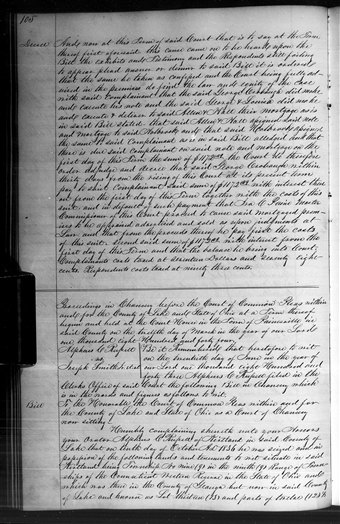 106
Decree And now at this Term of said Court that is to say at the Term
thereof first aforesaid this cause came on to be heard upon the
Bill the exhibits and Testimony and the Respondents still failing
to appear plead answer or demur to said Bill it is ordered
that the same be taken as confessed and the Court being fully ad-
vised in the premises do find the law and equity of the case
with said Complainant that the said George did make
and execute his note and the said George & Louisa did make
and execute & deliver to said Allen their mortgage as is
in said Bill stated that said Allen assigned said note
and mortgage to said Holbrook and that said Holbrook assigned
the same to said Complainant as is in said Bill alleged and that
there is due said Complainant on said note and mortgage on the
first day of this Term the sum of the Court do therefore
order adjudge and decree that said George within
thirty days from the rising of this Court at its present term
pay to said Complainant said sum of with interest there
on from the first day of this Term together with the costs of this
suit and in default of such payment that Ira C Paine Master
Commissioner of this Court proceed to cause said mortgaged prem-
ises to be appraised advertised and sold as upon judgments at
Law and that from the proceeds thereof he pay first the costs
of this suit. Second said sum of with interest from the
first day of this Term and that the balance he bring into Court.
Complainants costs taxed at seventeen Dollars and seventy eight
cents. Respondents costs taxed at ninety three cents.
Proceedings in Chancery before the Court of Common Pleas within
and for the County of Lake and State of Ohio at a Term thereof
begun and held at the Court House in the Town of Painesville in
said County on the twelfth day of March in the year of our Lord
one thousand eight Hundred and forty four.
Alpheus C Russell Be it Remembered that heretofore to wit
vs on the twentieth day of June in the year of
Joseph Smith et al our Lord one thousand eight Hundred and
forty three Alpheus C Russell filed in the
Clerks Office of said Court the following Bill in Chancery which
is in the words and figures as follows to wit.
Bill To the Honorable the Court of Common Pleas within and for
the County of Lake and State of Ohio as a Court of Chancery
now sitting.
Humbly complaining sheweth unto your Honors
your orator Alpheus C Russell of Kirtland in said County of
Lake that on the tenth day of October AD 1836 he was seized and in
possession of the following lands and tenements to wit situate in said
Kirtland being Township No nine (9) in the ninth (9) Range of Town-
ships of the Connecticut Western Reserve in the State of Ohio and
which was then in the County of Geauga but now in said County
of Lake and known as Lot thirteen (13) and parts of twelve (12)